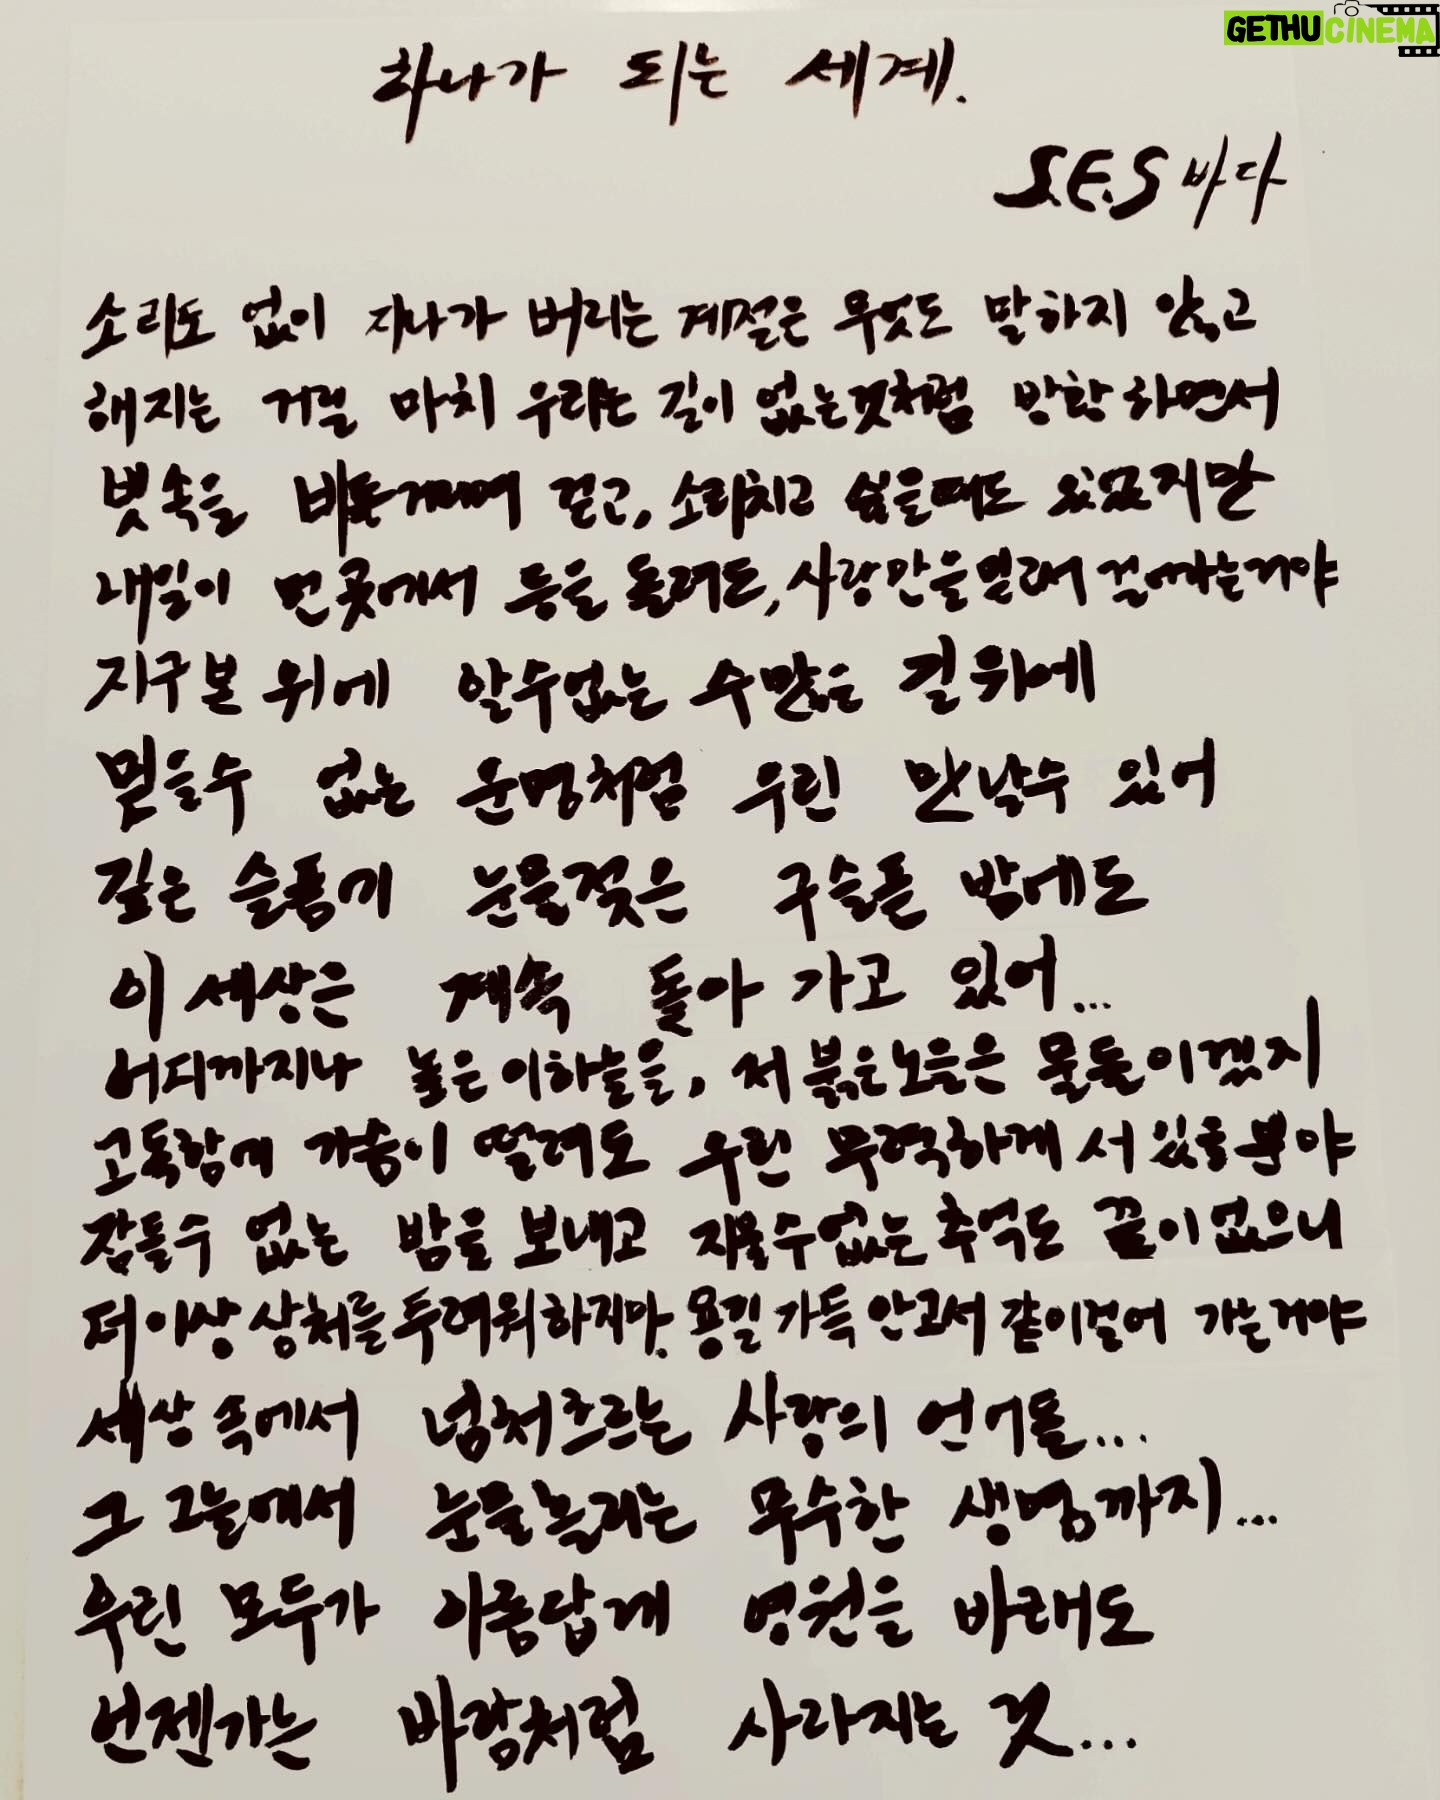 GETHUCINEMA
하나가 되는 세계.
S.E.S 바다
소리도 없이 지나가 버리는 계절은 무엇도 말하지 않고
해지는 거릴 마치 우리는 길이 없는것처럼 방황하면서
빗속을 비틀거리며 걷고, 소리치고 싶을때도 있었지만
내일이 먼 곳에서 등을 돌려도, 사랑만을 믿고서 걸어가는거야
지구본 위에 알수없는 수많은 길위에
믿을수 없는 운명처럼 우린 만날수 있어
깊은 슬픔에 눈물젖은 구슬픈 밤에도
이 세상은 계속 돌아 가고 있어...
어디까지나 높은 이하늘을, 저 붉은노을은 물들이겠지
고독함에 가슴이 떨려도 우린 무력하게 서 있을뿐야
잠들수 없는 밤을 보내고 지울수없는 추억도 끝이없으니
더이상 상처를 두려워하지마. 용길 가득 안고서 같이걸어 가는거야
세상 속에서 넘쳐흐르는 사랑의 언어들...
그 그늘에서 눈물흘리는 무수한 생명까지...
우린 모두가 아름답게 영원을 바래도
언젠가는 바람처럼 사라지는 것...